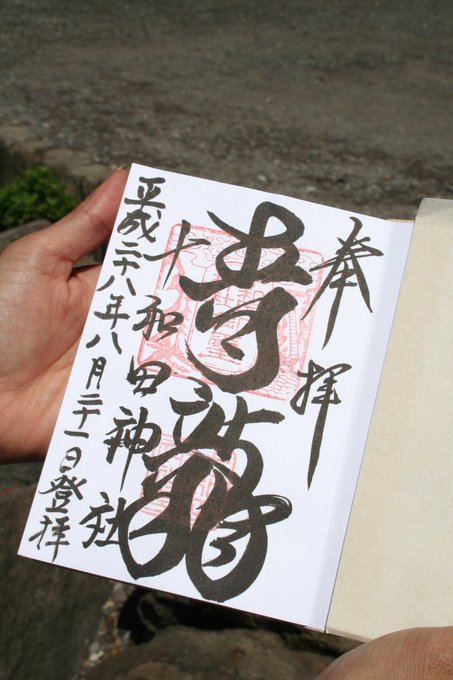 奉拝
青龍
十和田神社
平成二十八年八月二十一日登拝